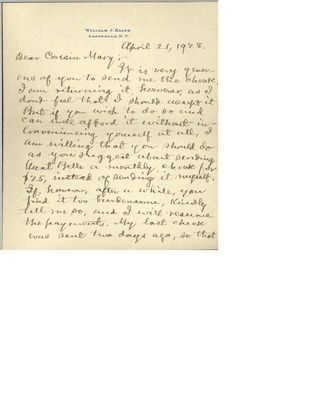 William J. Kline
Amsterdam, N.Y.
April 21, 1928.
Dear Cousin Mary:-
It is very gener-
ous of you to send me the check.
I am returning it, however, as I
dont feel that I should accept it
But if you wish to do so and
can well afford it without in-
conveniencing yourself at all, I
am willing that you should do
as you suggest about sending
Aunt Belle a monthly check for
$75, instead of sending it myself.
If, however, after a while, you
find it too burdensome, kindly
tell me so, and I will resume
the payments. My last check
was sent two days ago, so that